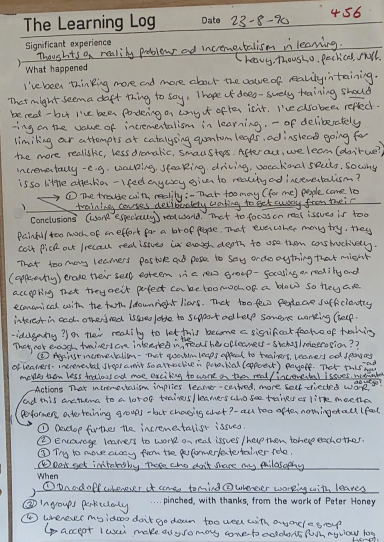 The Learning Log
Date 23-8-90
456
Significant experience
Thoughts on reality problems and incrementalism in learning.
What happened
I've been thinking more and more about the value of reality in training.
That might seem a daft thing to say, I hope it does - surely training should
be real - but I've been pondering on why it often isn't. I've also been reflect-
-ing on the value of incrementalism in learning, - of deliberately
limiting our attempts at catalysing quantum leaps and instead going for
the more realistic, less dramatic, small steps. After all, we learn (don't we?)
incrementally - e.g. walking, speaking, driving, vocational skills, so why
is so little attention - I feel anyway given to reality and incrementalism?
① The trouble with reality: - That too many (for me) people come to
training courses deliberately wanting to get away from their
Conclusions (work especially) real world. That to focus on real issues is too
painful/too much of an effort for a lot of people. That even when many try, they
can't pick out/recall real issues in enough depth to use them constructively.
That too many learners posture and pose to say or do anything that might
(apparently) erode their self esteem in a new group - focusing on reality and
accepting that they aren't perfect can be too much of a blow so they are
economical with the truth/downright liars. That too few people are sufficiently
interested in each others real issues to support and help someone working (self-
-indulgently?) on their reality to let this become a significant feature of training
That, not enough trainers are interested in, the real
② Against incrementalism - That quantum leaps appeal to trainers, learners and sponsors
of learners - incremental steps aren't so attractive in potential (apparent) payoff. That this
makes them less
Actions That incrementalism implies learner-centred, more self-directed work
and this anathema to a lot of trainers/learners who see trainers as little more than
performers, entertaining groups - but changing what? - all too often nothing at all I feel
① Develop further the incrementalist issues.
② Encourage learners to work on real issues/help them to help each other.
③ Try to move away from the performer/entertainer role.
④ Don't get irritated by those who don't share my philosophy
When
① On and off whenever it comes to mind ② whenever working with learners
③ In groups particularly
.....pinched, with thanks, from the work of Peter Honey
④ Whenever my ideas don't go down too well with anyone/a group